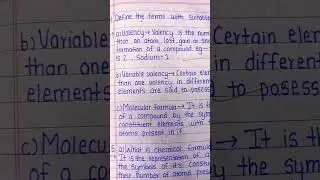 Define the terms with suitable
a) Valency → Valency is the num
that an atom lost, gain or sh
formation of a compound eg -
is 2 . Sodium - 1
b) Variable valency → Certain elem
than one valency in different
elements are said to posess
c) Molecular formula → It is t
of a compound by the sym
constituent elements with
atoms present in it.
a) What is chemical formula
It is the representation of a
the symbols of its Const
their number of atoms prese
b) Variable
than one
elements
c) Molecu
Certain elem
in different
to posess
It is th
the sym